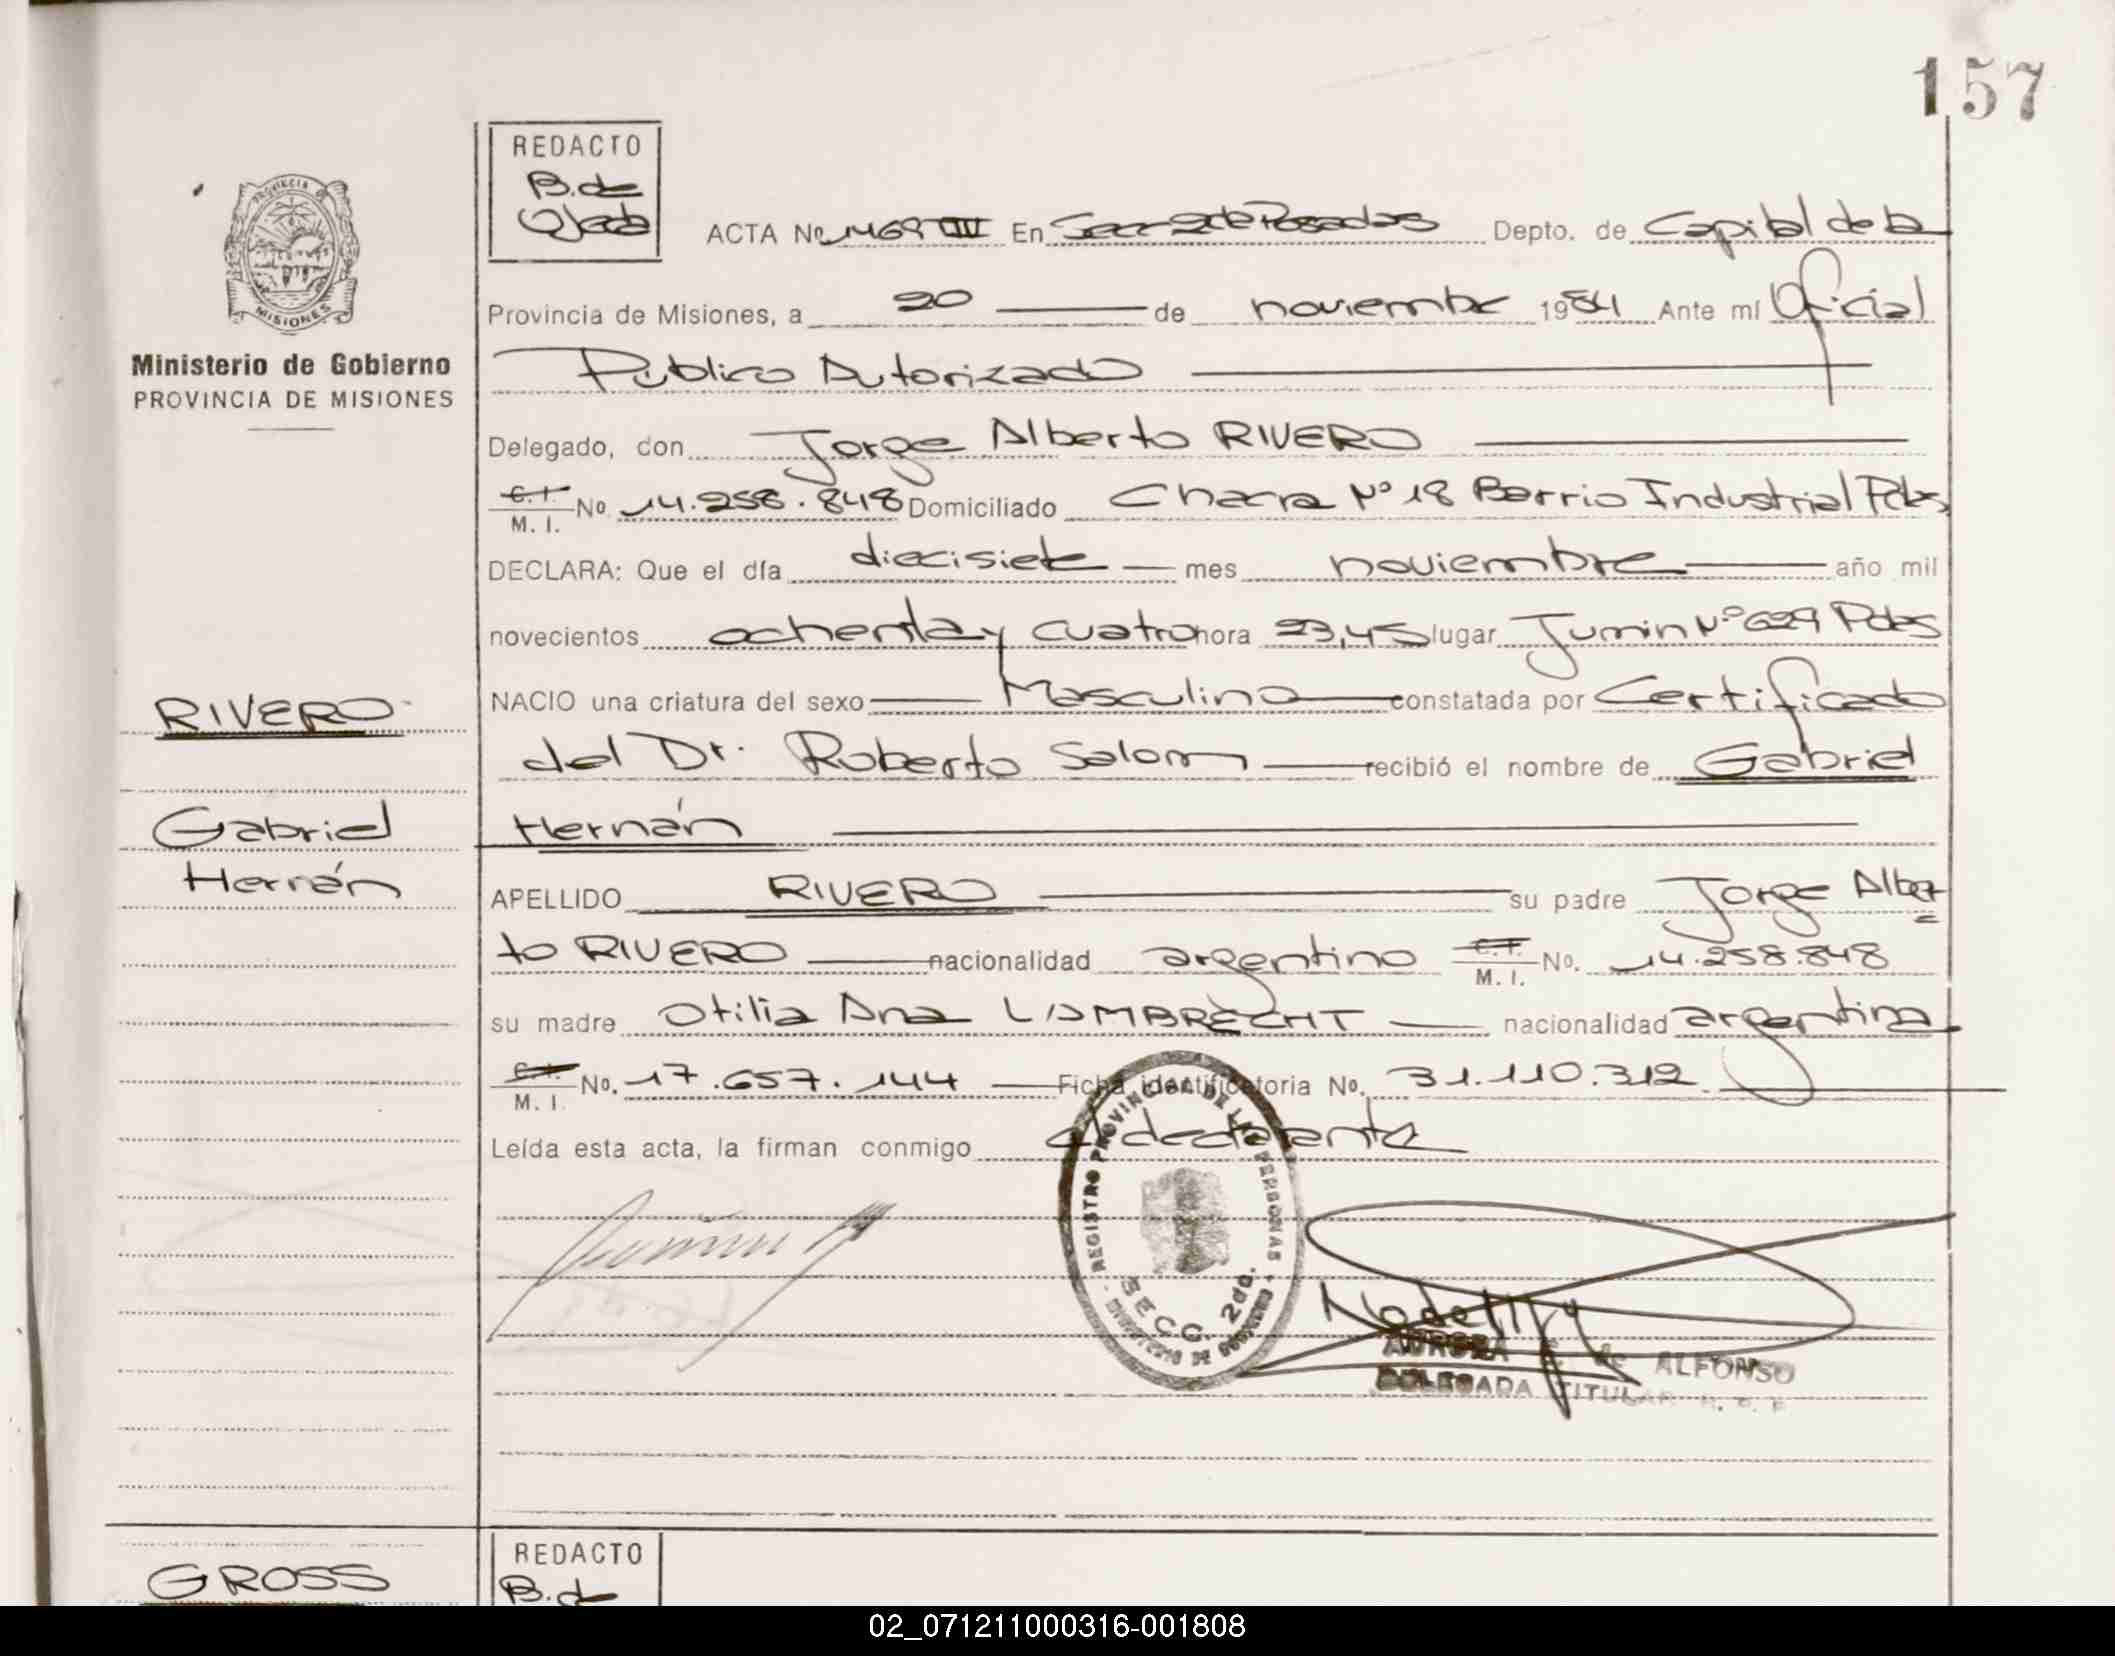 157
REDACTO
B. de
Ojeda
PROVINCIA DE
MISIONES
Ministerio de Gobierno
PROVINCIA DE MISIONES
ACTA No 1469 VIII En Secc 2de Posadas Depto. de Capital de la
Provincia de Misiones, a 20 de noviembre 1984 Ante mí Oficial
Publico Autorizado
Delegado, don Jorge Alberto RIVERO
C. I. M. I. No 14.258.848 Domiciliado Chacra Nº 18 Barrio Industrial Pdas
DECLARA: Que el día diecisiete mes noviembre año mil
novecientos ochenta y cuatro hora 23,45 lugar Junin Nº 629 Pdas
NACIO una criatura del sexo Masculino constatada por Certificado
del Dr. Roberto Salom recibió el nombre de Gabriel
Hernán
APELLIDO RIVERO su padre Jorge Alber=
to RIVERO nacionalidad argentino C. I. M. I. No. 14.258.848
su madre Otilia Ana LAMBRECHT nacionalidad argentina
C. I. M. I. No. 17.657.144 Ficha identificatoria No. 31.110.312
Leída esta acta, la firman conmigo el declarante
RIVERO
Gabriel
Hernán
REGISTRO PROVINCIAL DE LAS PERSONAS
SECC. 2da.
MINISTERIO DE GOBIERNO
AURORA de ALFONSO
DELEGADA TITULAR
GROSS
REDACTO
B. de
02_071211000316-001808